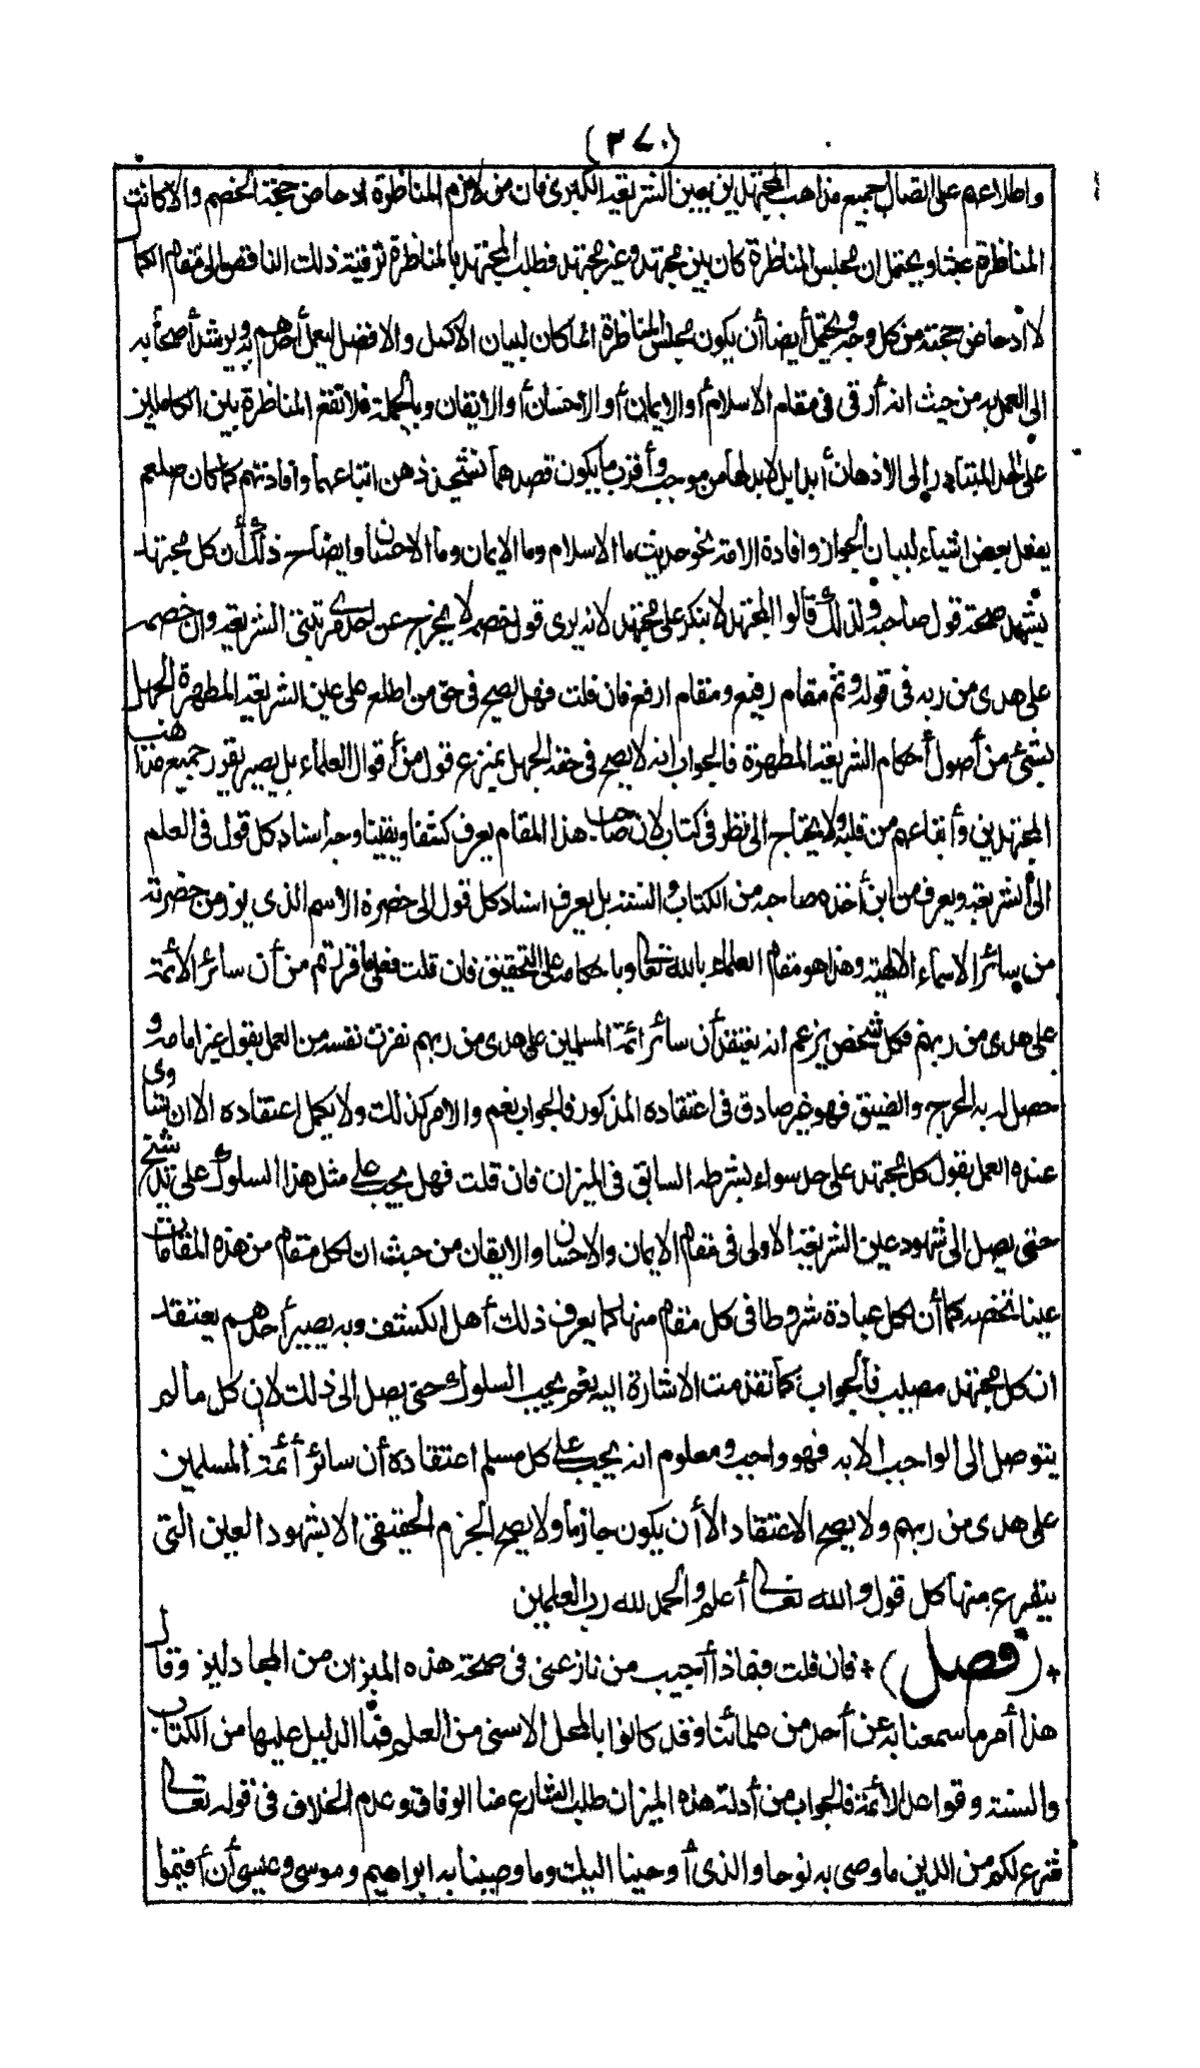 (٣٧٠)
واطلاعهم على اتصال جميع مذاهب المجتهدين بعين الشريعة الكبرى فان من لازم المناظرة ادحاض حجة الخصم والا كانت
المناظرة عبثا ويحتمل ان مجلس المناظرة كان بين مجتهد وغير مجتهد فطلب المجتهد بالمناظرة ترقية ذلك الناقص الى مقام الكمال
لا ادحاض حجته من كل وجه ويحتمل أيضا أن يكون مجلس المناظرة انما كان لبيان الاكمل والافضل ليعمل أحدهم به ويرشد أصحابه
الى العمل به من حيث انه أرقى فى مقام الاسلام أو الايمان أو الاحسان أو الايقان وبالجملة فلا تقع المناظرة بين الكاملين
على الحد المتبادر الى الاذهان أبدا بل لابد لها من موجب وأقرب ما يكون قصدهما تشحيذ ذهن اتباعهما وافادتهم كما كان صلعم
يفعل بعض اشياء لبيان الجواز وافادة الامة نحو حديث ما الاسلام وما الايمان وما الاحسان وايضاح ذلك أن كل مجتهد
يشهد صحة قول صاحبه ولذلك قالوا المجتهد لا ينكر على مجتهد لانه يرى قول خصمه لا يخرج عن احدى مرتبتى الشريعة وان خصمه
على هدى من ربه فى قوله وثم مقام رفيع ومقام ارفع فان قلت فهل يصح فى حق من اطلع على عين الشريعة المطهرة الجهل
بشىء من أصول أحكام الشريعة المطهرة فالجواب انه لا يصح فى حقه الجهل بمنزع قول من أقوال العلماء بل يصير يقرر جميع مذاهب
المجتهدين وأتباعهم من قلبه ولا يحتاج الى نظر فى كتاب لان صاحب هذا المقام يعرف كشفا ويقينا وجه اسناد كل قول فى العلم
الى الشريعة ويعرف من اين أخذه صاحبه من الكتاب والسنة بل يعرف اسناد كل قول الى حضرة الاسم الذى برز من حضرته
من سائر الاسماء الالهية وهذا هو مقام العلماء بالله تعالى وباحكامه على التحقيق فان قلت فعلى ما قررتم من أن سائر الأئمة
على هدى من ربهم فكل شخص يزعم انه يعتقد أن سائر ائمة المسلمين على هدى من ربهم نفرت نفسه من العمل بقول غير امامه و
حصل له به الحرج والضيق فهو غير صادق فى اعتقاده المذكور فالجواب نعم والامر كذلك ولا يكمل اعتقاده الا ان تساوى
عنده العمل بقول كل مجتهد على حد سواء بشرطه السابق فى الميزان فان قلت فهل يجب على مثل هذا السلوك على يد شيخ
حتى يصل الى شهود عين الشريعة الاولى فى مقام الايمان والاحسان والايقان من حيث ان لكل مقام من هذه المقامات
عينا تخصه كما أن لكل عبادة شروطا فى كل مقام منها كما يعرف ذلك أهل الكشف وبه يصير أحدهم يعتقد
ان كل مجتهد مصيب فالجواب كما تقدمت الاشارة اليه نعم يجب السلوك حتى يصل الى ذلك لان كل ما لم
يتوصل الى الواجب الا به فهو واجب ومعلوم انه يجب على كل مسلم اعتقاده أن سائر أئمة المسلمين
على هدى من ربهم ولا يصح الاعتقاد الا أن يكون جازما ولا يصح الجزم الحقيقى الا بشهود العين التى
يتفرع منها كل قول والله تعالى أعلم والحمد لله رب العلمين
+(فصل)+ فان قلت فبماذا أجيب من نازعنى فى صحة هذه الميزان من المجادلين وقال
هذا أمر ما سمعنا به عن أحد من علمائنا وقد كانوا بالمحل الاسنى من العلم فما الدليل عليها من الكتاب
والسنة وقواعد الأئمة فالجواب من أدلة هذه الميزان طلب الشارع منا الوفاق وعدم الخلاف فى قوله تعالى
شرع لكم من الدين ما وصى به نوحا والذى أوحينا اليك وما وصينا به ابراهيم وموسى وعيسى أن أقيموا